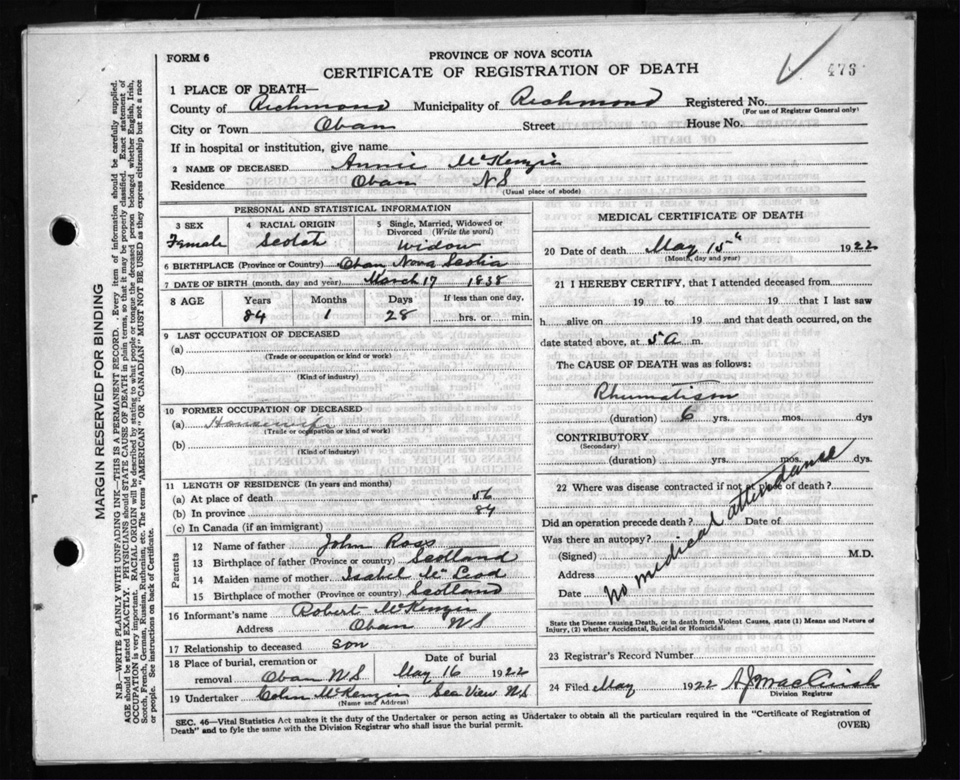 473
FORM 6
PROVINCE OF NOVA SCOTIA
CERTIFICATE OF REGISTRATION OF DEATH
1 PLACE OF DEATH—
County of Richmond Municipality of Richmond Registered No.
(For use of Registrar General only)
City or Town Oban Street House No.
If in hospital or institution, give name
2 NAME OF DECEASED Annie McKenzie
Residence Oban NS
(Usual place of abode)
PERSONAL AND STATISTICAL INFORMATION
3 SEX Female
4 RACIAL ORIGIN Scotch
5 Single, Married, Widowed or Divorced (Write the word) Widow
6 BIRTHPLACE (Province or Country) Oban Nova Scotia
7 DATE OF BIRTH (month, day and year) March 17 1838
8 AGE Years Months Days If less than one day,
84 1 28 hrs. or min.
9 LAST OCCUPATION OF DECEASED
(a)
(Trade or occupation or kind of work)
(b)
(Kind of industry)
10 FORMER OCCUPATION OF DECEASED
(a) Housewife
(Trade or occupation or kind of work)
(b)
(Kind of industry)
11 LENGTH OF RESIDENCE (In years and months)
(a) At place of death 56
(b) In province 84
(c) In Canada (if an immigrant)
Parents
12 Name of father John Ross
13 Birthplace of father (Province or country) Scotland
14 Maiden name of mother Isabel McLeod
15 Birthplace of mother (Province or country) Scotland
16 Informant's name Robert McKenzie
Address Oban NS
17 Relationship to deceased Son
18 Place of burial, cremation or removal Oban NS
Date of burial May 16 1922
19 Undertaker Colin McKenzie Sea View NS
(Name and Address)
MEDICAL CERTIFICATE OF DEATH
20 Date of death May 15" 1922
(Month, day and year)
21 I HEREBY CERTIFY, that I attended deceased from
19 to 19 that I last saw
h alive on 19 and that death occurred, on the
date stated above, at 5 A m.
The CAUSE OF DEATH was as follows:
Rhumatism
(duration) 6 yrs. mos. dys
CONTRIBUTORY
(Secondary)
(duration) yrs. mos. dys.
22 Where was disease contracted if not at place of death?
Did an operation precede death? Date of
Was there an autopsy?
(Signed) M.D.
Address
Date
No medical attendance
State the Disease causing Death, or in death from Violent Causes, state (1) Means and Nature of
Injury, (2) whether Accidental, Suicidal or Homicidal.
23 Registrar's Record Number
24 Filed May 1922
Division Registrar
SEC. 46—Vital Statistics Act makes it the duty of the Undertaker or person acting as Undertaker to obtain all the particulars required in the "Certificate of Registration of
Death" and to fyle the same with the Division Registrar who shall issue the burial permit.
(OVER)
MARGIN RESERVED FOR BINDING
N.B.—WRITE PLAINLY WITH UNFADING INK—THIS IS A PERMANENT RECORD. Every item of information should be carefully supplied.
AGE should be stated EXACTLY. PHYSICIANS should STATE CAUSE OF DEATH in plain terms, so that it may be properly classified. Exact statement of
OCCUPATION is very important. RACIAL ORIGIN will be described by stating to what people or tongue the deceased person belonged whether English, Irish,
Scotch, French, German, Russian, Ruthenian, etc. The terms "AMERICAN" OR "CANADIAN" MUST NOT BE USED as they express citizenship but not a race
or people. See instructions on back of Certificate.